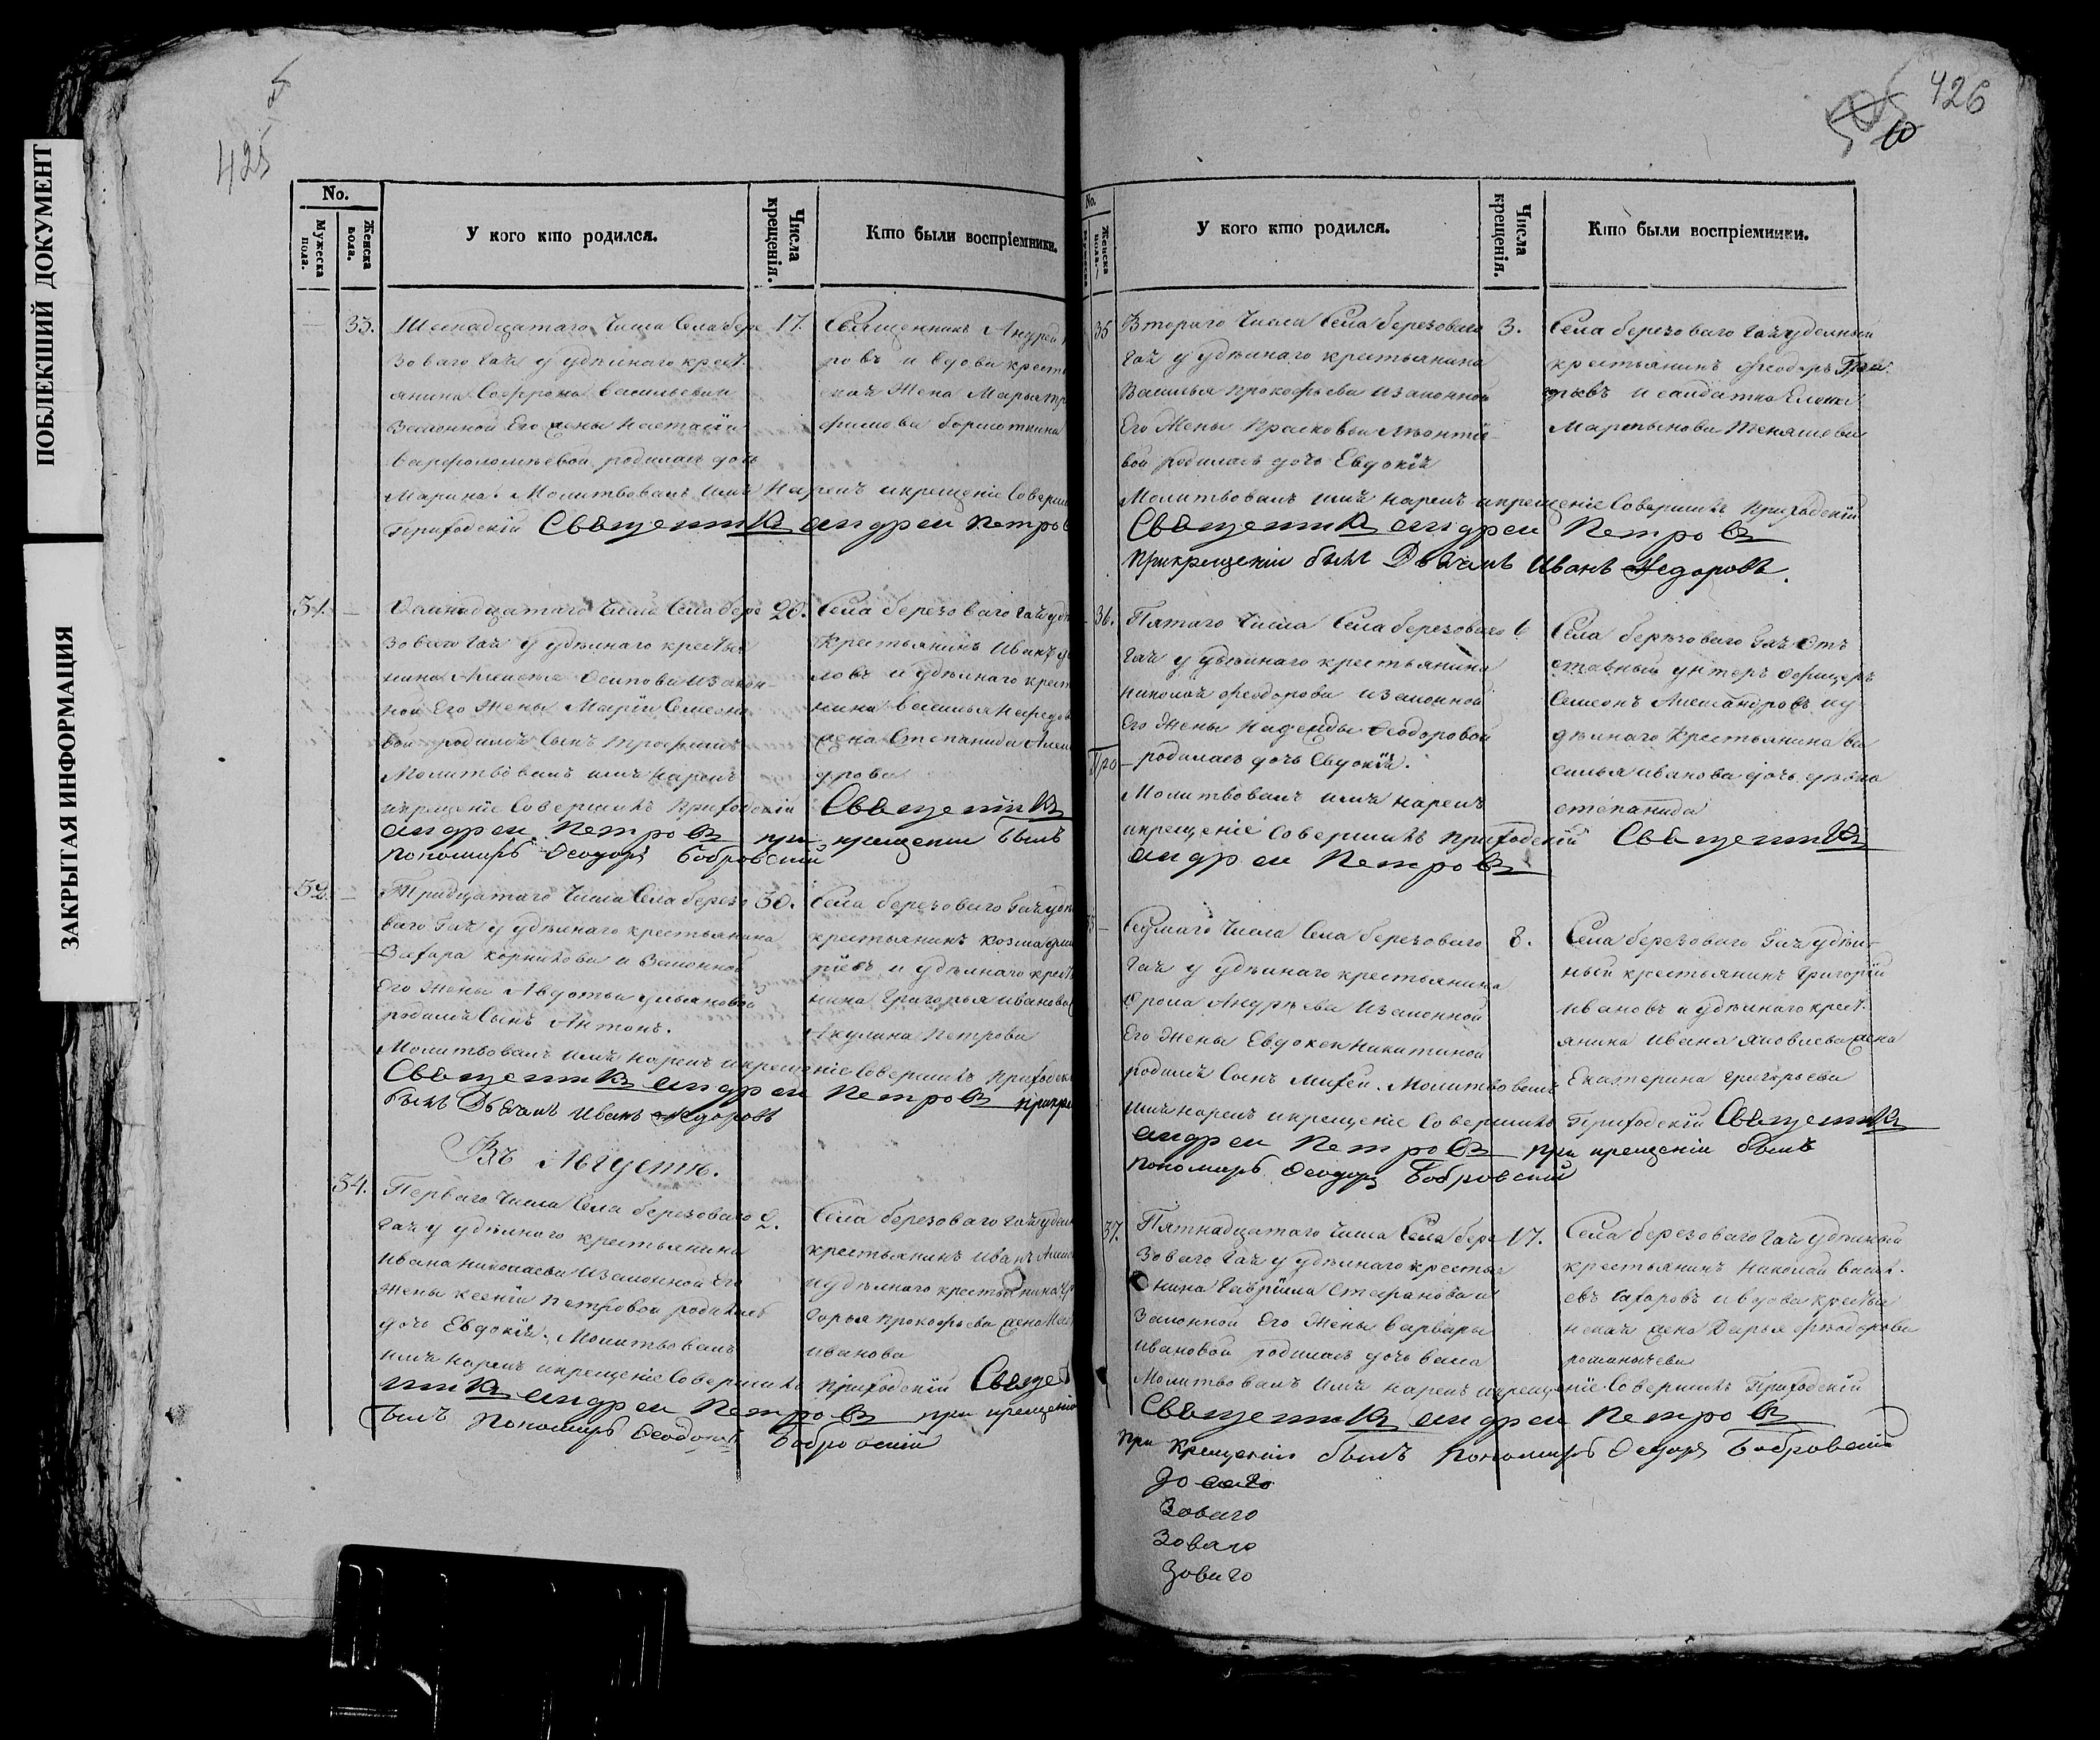 ПОБЛЕКШИЙ ДОКУМЕНТ
ЗАКРЫТАЯ ИНФОРМАЦИЯ
5
425
No.
Мужеска пола.
Женска пола.
У кого кто родился.
Числа крещенія.
Кто были воспріемники.
33.
Шеснадцатаго числа Села бере
зоваго Гач у удѣлнаго крест.
янина Софрона Васильева и
Законной Его жены Настасіи
Варфоломѣевой родилась дочь
Марина. Молитвовалъ имя Нарекъ и крещеніе Соверши
Приходскій Священникъ андреи Петровъ
17.
Священникъ Андрей
ровъ и вдова крест
ская Жена Марья
фимова
51.
числа Села бере
зоваго Гач у удѣлнаго крестья
нина Осипова и закон-
ной Его Жены Маріи Семено
вой родился Сынъ Трофимъ
Молитвовалъ имя нарекъ
и крещеніе Совершилъ Приходскій Священникъ
андреи Петровъ при крещеніи былъ
пономарь Ѳеодоръ Бобровскій
20.
Села березоваго Гач удѣ
Крестьянинъ Иванъ
ловъ и удѣлнаго крест
нина Василья
жена Степанида Алек
дрова
52.
Тридцатаго числа Села берез
ваго Гач у удѣлнаго крестьянина
Захара Корнилова и Законной
Его Жены Авдотьи Ульяновой
родился Сынъ Антонъ.
Молитвовалъ имя нарекъ и крещеніе Совершилъ Приходск
Священникъ андреи Петровъ прикре
былъ Дьячекъ Иванъ Ѳедоровъ
30.
Села березоваго Гач удѣ
крестьянинъ Козма
ріевъ и удѣлнаго крест
нина Григорья Иванова
Акулина Петрова
Въ Августѣ.
34.
Перваго числа Села березоваго
Гач у удѣлнаго крестьянина
Ивана Николаева и Законной Его
Жены Ксеніи Петровой родилась
дочь Евдокія. Молитвовалъ
имя нарекъ и крещеніе Совершилъ приходскій Священ
никъ андреи Петровъ при крещеніи
былъ Пономарь Ѳеодоръ Бобровскій
2.
Села березоваго Гач удѣлн
крестьянинъ Иванъ
и удѣлнаго крестьянина
горья Прокофьева жена
Иванова
426
No.
Женска пола.
У кого кто родился.
Числа крещенія.
Кто были воспріемники.
35
Втораго числа Села березоваго
Гач у удѣлнаго крестьянина
Василья Прокофьева и законной
Его Жены Прасковьи Леонтіе-
вой родилась дочь Евдокія
Молитвовалъ имя нарекъ и крещеніе Совершилъ Приходскій
Священникъ андреи Петровъ
Прикрещеніи былъ Дьячекъ Иванъ Ѳедоровъ.
3.
Села березоваго Гач удѣлный
крестьянинъ Феодоръ
и салдатка Елена
Мартынова
36.
Пятаго числа Села березоваго
Гач у удѣлнаго крестьянина
Николая Феодорова и законной
Его Жены Надежды Ѳеодоровой
родилась дочь Евдокія.
Молитвовалъ имя нарекъ
и крещеніе Совершилъ приходскій Священникъ
андреи Петровъ
6
Села березоваго Гач От
ставный унтеръ Офицеръ
Семенъ Александровъ и у
дѣлнаго Крестьянина Ва
силья Иванова дочь дѣвка
степанида
Про
Седмаго числа Села березоваго
Гач у удѣлнаго крестьянина
Фрола Андрѣева и Законной
Его Жены Евдокеи Никитиной
родился Сынъ Михей. Молитвовалъ
имя нарекъ и крещеніе Совершилъ Приходскій Священникъ
андреи Петровъ при крещеніи былъ
Пономарь Ѳеодоръ Бобровскій
8.
Села березоваго Гач удѣл-
ный крестьянинъ Григорій
Ивановъ и удѣлнаго крест.
янина Ивана Яковлева жена
Екатерина Григорьева
37.
Пятнадцатаго числа Села бере
зоваго Гач у удѣлнаго крестья
нина Гавріила Стефанова и
Законной Его Жены Варвары
Ивановой родилась дочь Васа
Молитвовалъ имя нарекъ и крещеніе Совершилъ Приходскій
Священникъ андреи Петровъ
При крещеніи былъ Пономарь Ѳеодоръ Бобровскій
17.
Села березоваго Гач удѣлный
крестьянинъ Николай Василь-
евъ Захаровъ и вдова крестья
нская жена Дарья Фѣодорова
романычева
Зоваго
Зоваго
Зоваго